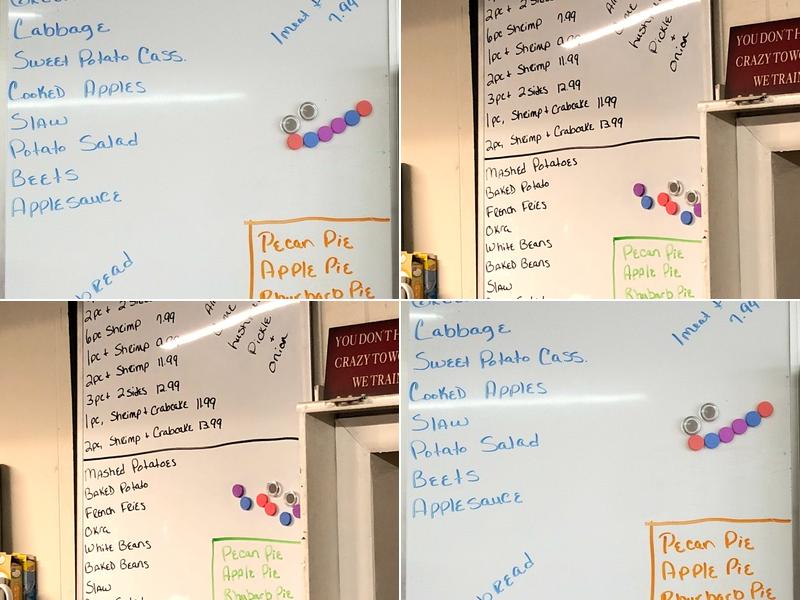 Cabbage
Sweet Potato Cass.
Cooked Apples
Slaw
Potato Salad
Beets
Applesauce
1 meat +
7.99
Pecan Pie
Apple Pie
Rhubarb Pie
2pc + 2 Sides
6pc Shrimp 7.99
1pc + Shrimp
2pc + Shrimp 11.99
3pc + 2 sides 12.99
1pc, Shrimp + Crabcake 11.99
2pc, Shrimp + Crabcake 13.99
Pickle
+
onion
Mashed Potatoes
Baked Potato
French Fries
Okra
White Beans
Baked Beans
Slaw
Pecan Pie
Apple Pie
Rhubarb Pie
YOU DON'T H
CRAZY TO WO
WE TRAIN
2pc + 2 Sides
6pc Shrimp 7.99
1pc + Shrimp
2pc + Shrimp 11.99
3pc + 2 sides 12.99
1pc, Shrimp + Crabcake 11.99
2pc, Shrimp + Crabcake 13.99
Pickle
+
onion
Mashed Potatoes
Baked Potato
French Fries
Okra
White Beans
Baked Beans
Slaw
Pecan Pie
Apple Pie
Rhubarb Pie
YOU DON'T H
CRAZY TO WO
WE TRAIN
Cabbage
Sweet Potato Cass.
Cooked Apples
Slaw
Potato Salad
Beets
Applesauce
1 meat +
7.99
Pecan Pie
Apple Pie
Rhubarb Pie